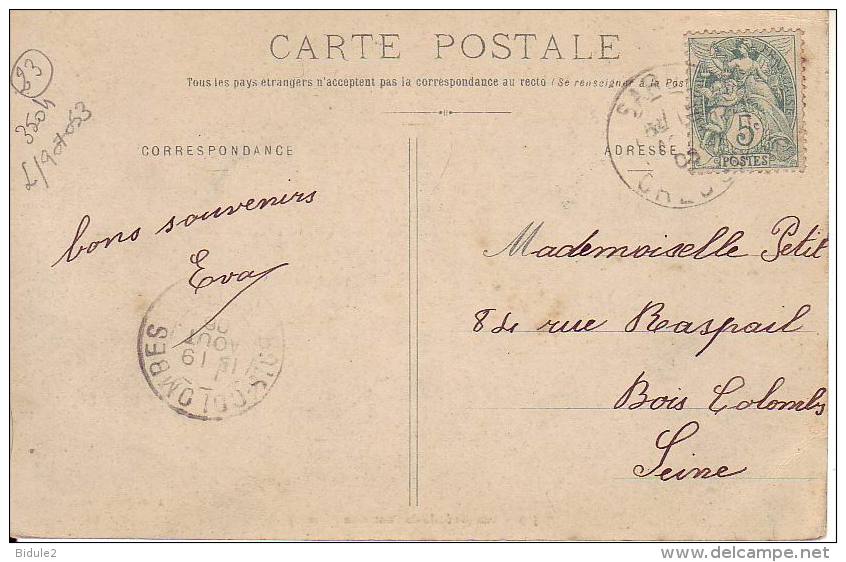 CARTE POSTALE
Tous les pays étrangers n'acceptent pas la correspondance au recto (Se renseigner à la Post
CORRESPONDANCE
ADRESSE
5c
POSTES
93
3504
bons souvenirs
Eva
Mademoiselle Petit
84 rue Raspail
Bois Colombes
Seine
BOIS-COLOMBES
19
AOUT
Bidule2
delcampe.net